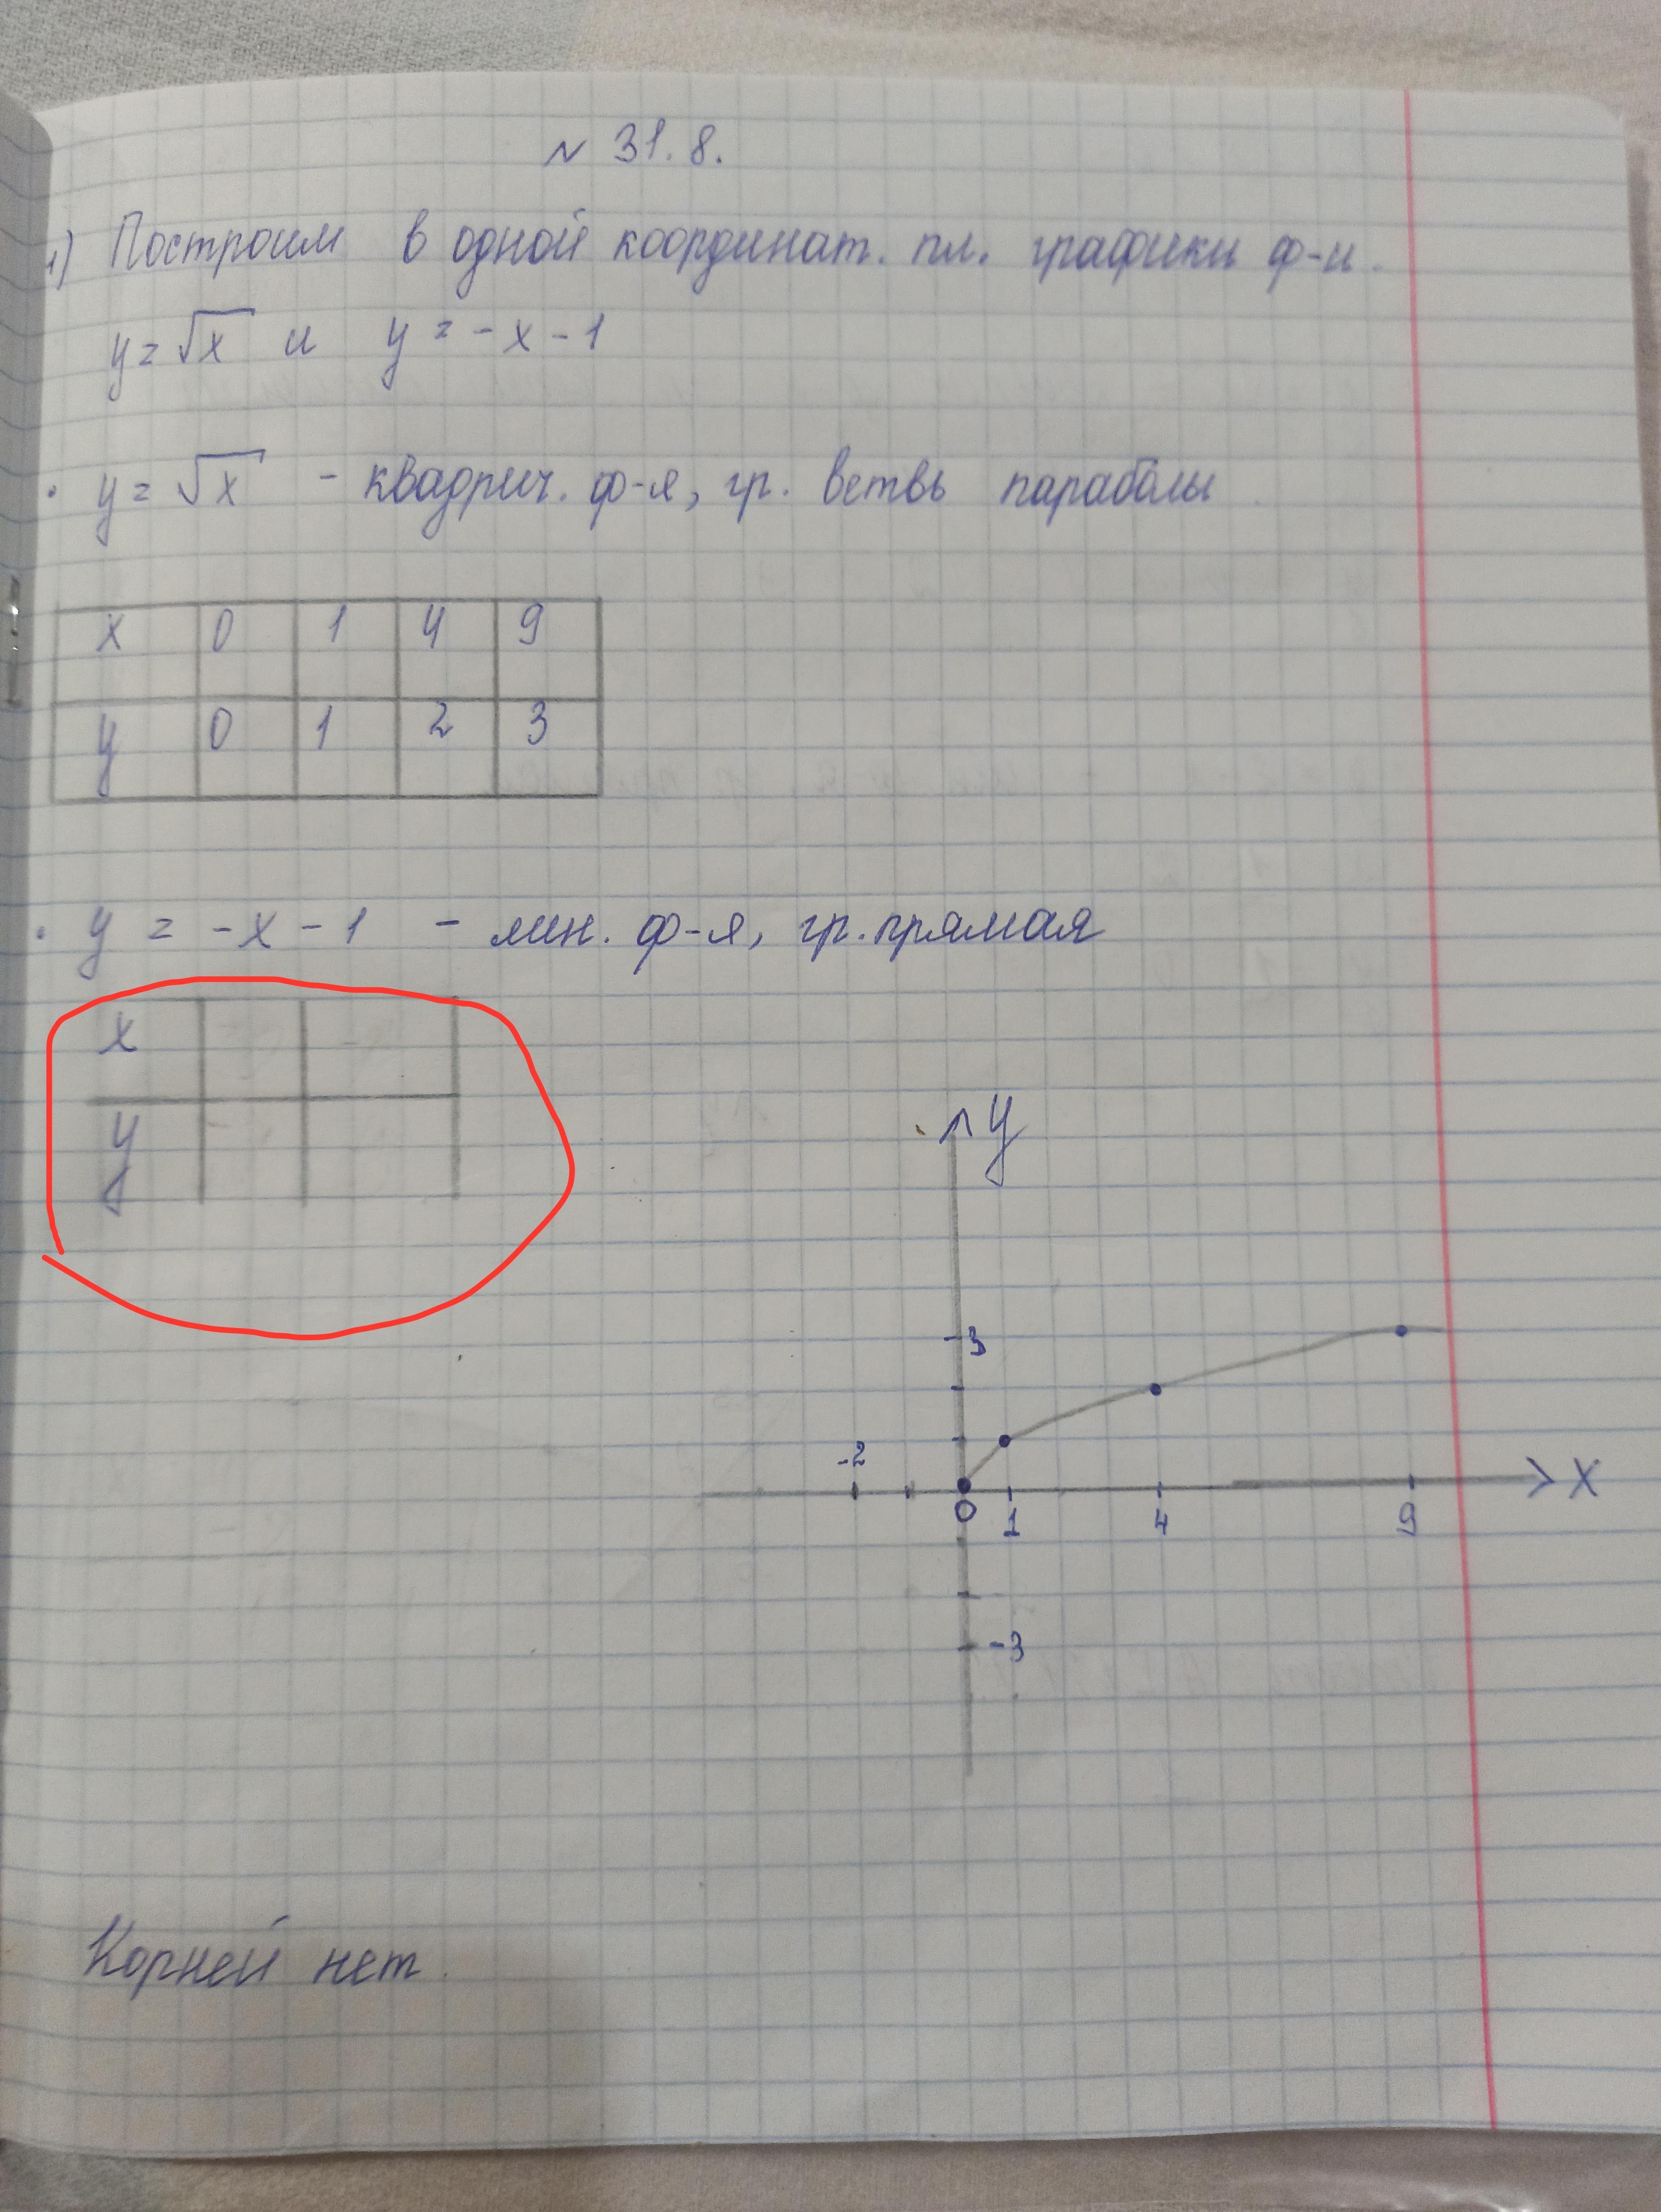 N 31.8.
1) Построим в одной координат. пл. графики ф-и.
y = √x и y = -x - 1
• y = √x - квадрич. ф-я, гр. ветвь параболы
x 0 1 4 9
y 0 1 2 3
• y = -x - 1 - лин. ф-я, гр. прямая
x
y
y
3
-2
0 1 4 9 x
-3
Корней нет.